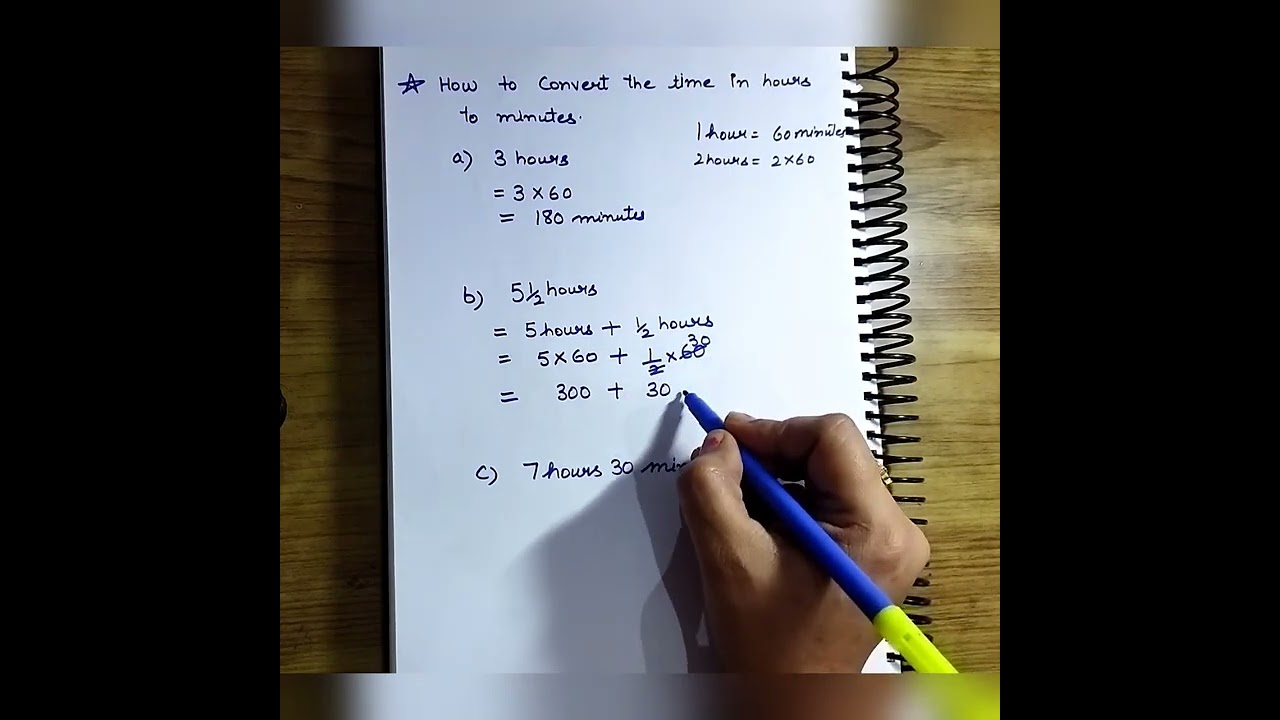 ☆ How to convert the time in hours
to minutes.
1 hour = 60 minutes
2 hours = 2 × 60
a) 3 hours
= 3 × 60
= 180 minutes
b) 5 1/2 hours
= 5 hours + 1/2 hours
= 5 × 60 + 1/2 × 60 30
= 300 + 30
c) 7 hours 30